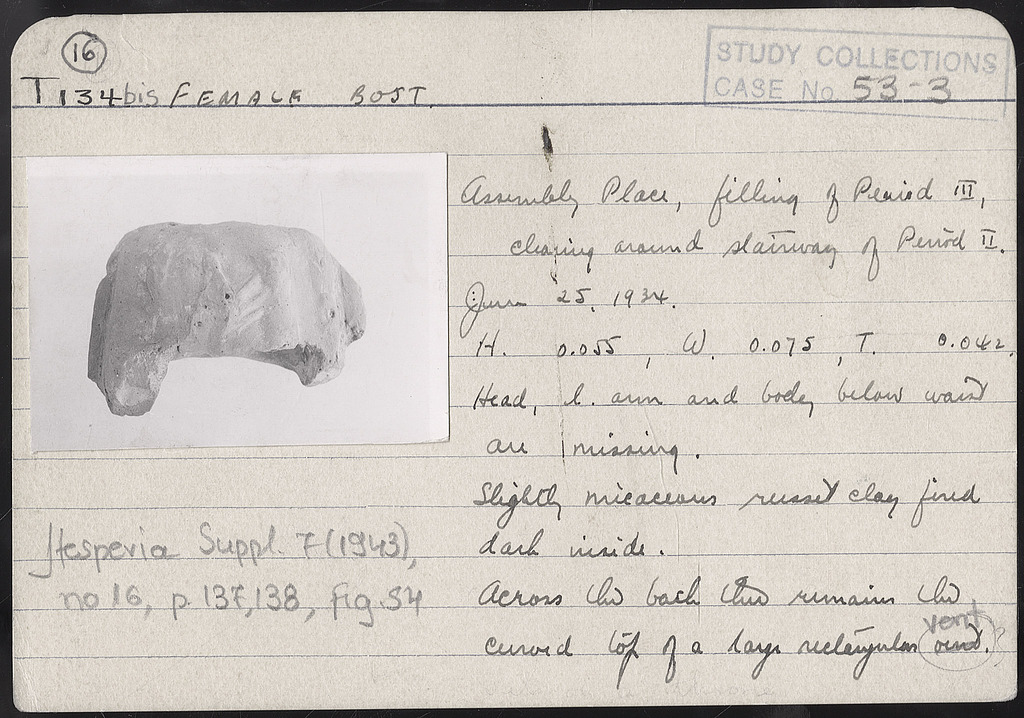 16
T 134bis FEMALE BUST.
STUDY COLLECTIONS
CASE No 53-3
Assembly Place, filling of Period III,
clearing around stairway of Period II.
June 25, 1934.
H. 0.055, W. 0.075, T. 0.042.
Head, l. arm and body below waist
are missing.
Slightly micaceous russet clay fired
dark inside.
Across the back there remains the
curved top of a large rectangular vent.
vent ?
Hesperia Suppl. 7 (1943),
no 16, p. 137,138, fig. 54